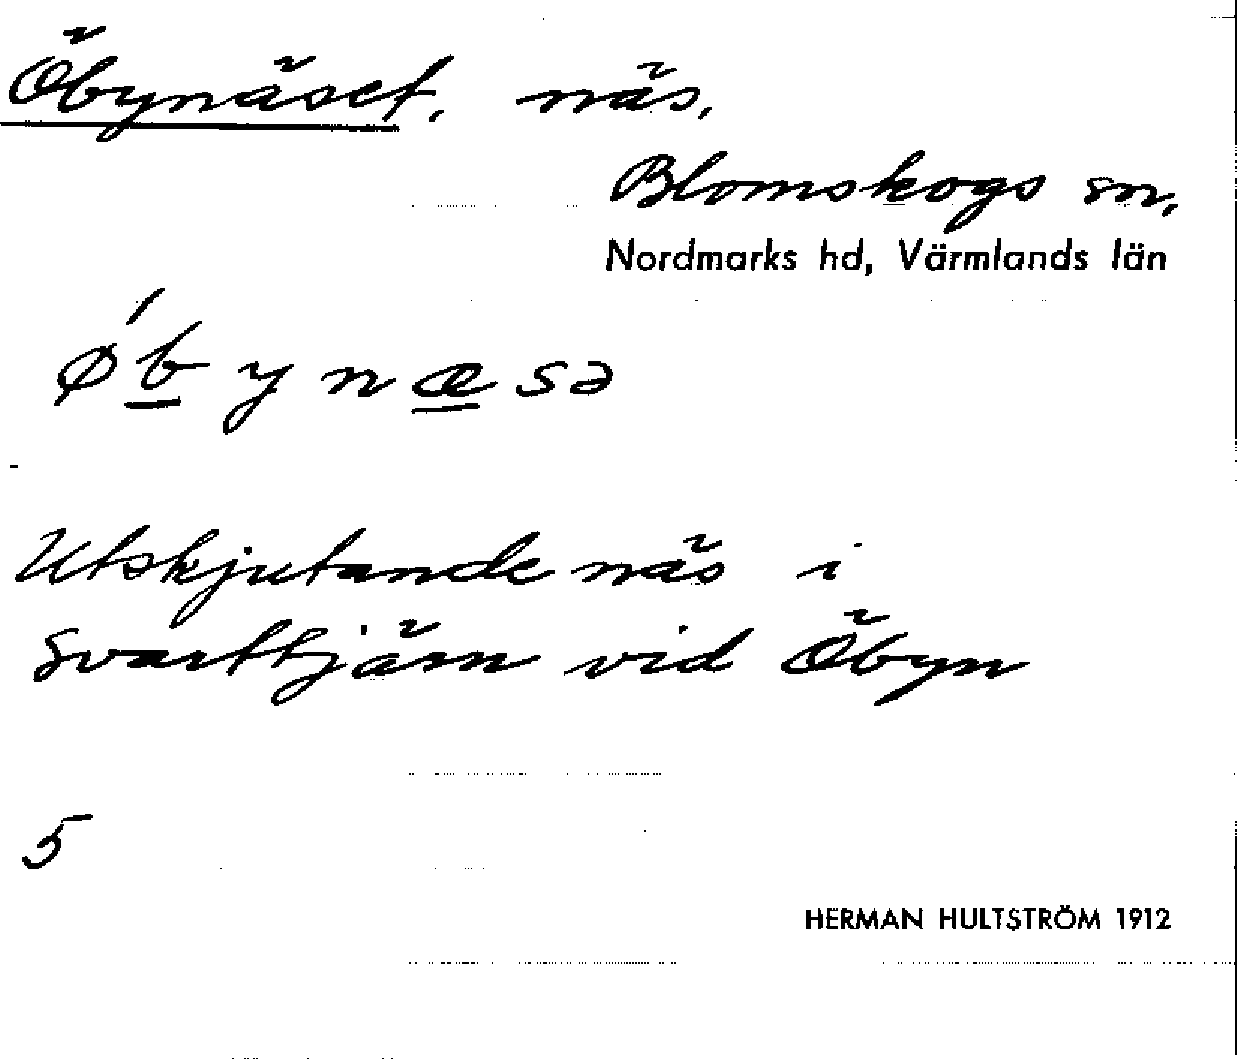 Öbynäset, näs,
Blomskogs sn,
Nordmarks hd, Värmlands län
ǿbynæsə
Utskjutande näs i
Svarttjärn vid Öbyn
5
HERMAN HULTSTRÖM 1912